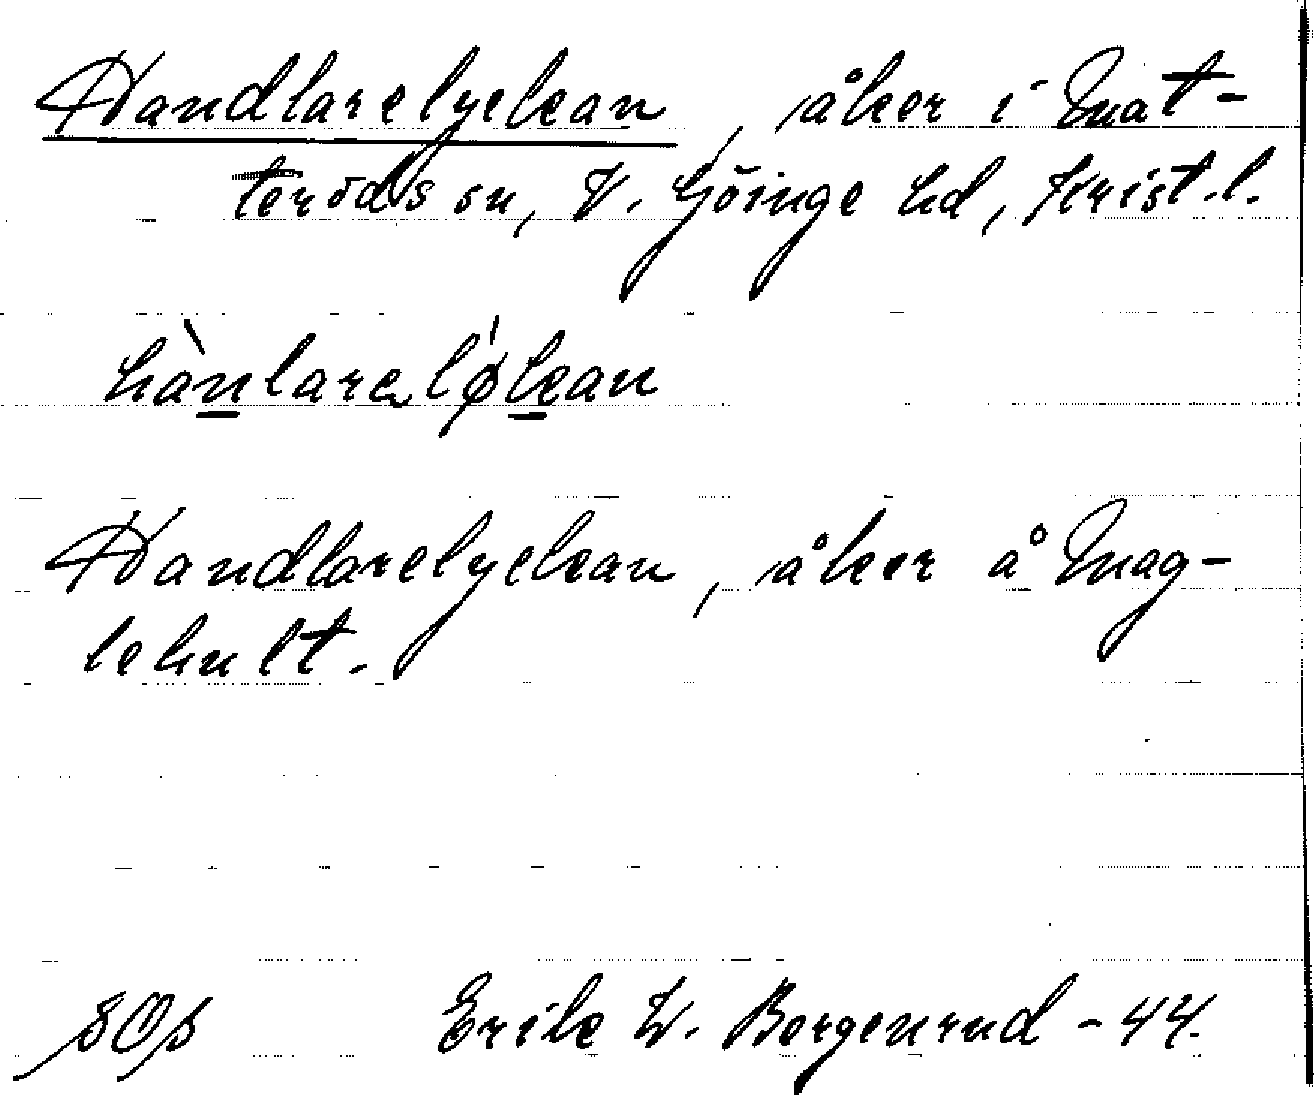 Handlarelyckan, åker i Mat-
teröds sn, V. Göinge hd, Krist.l.
hànlareløkan
Handlarelyckan, åker å Mag-
lehult.
Erik W. Borgenrud - 44.